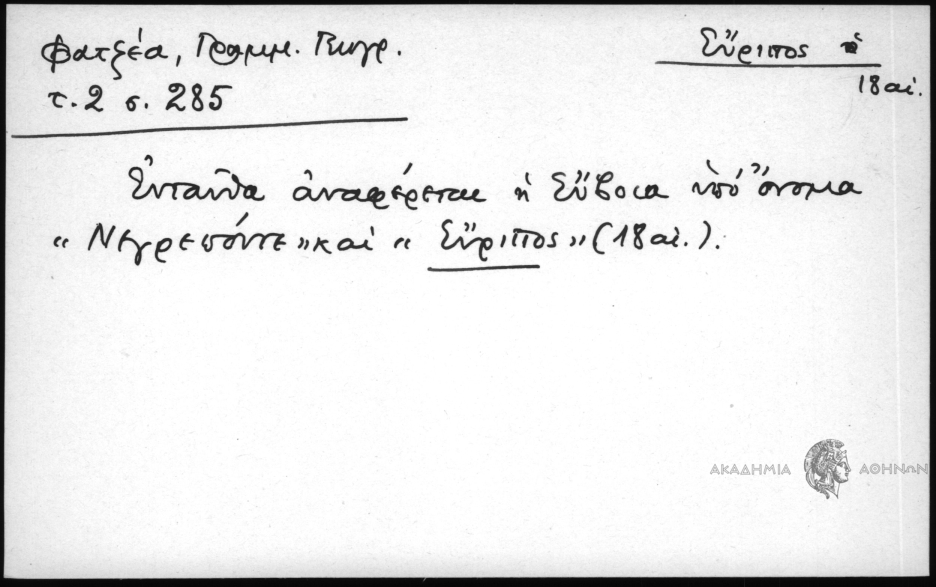 Φατζέα, Γραμμ. Γεωγρ.
τ. 2 σ. 285
Εὔριπος ἡ
18 αἰ.
Ἐνταῦθα ἀναφέρεται ἡ Εὔβοια ὑπό ὄνομα
« Νεγρεπόντε » καὶ « Εὔριπος » (18 αἰ.).
ΑΚΑΔΗΜΙΑ ΑΘΗΝΩΝ